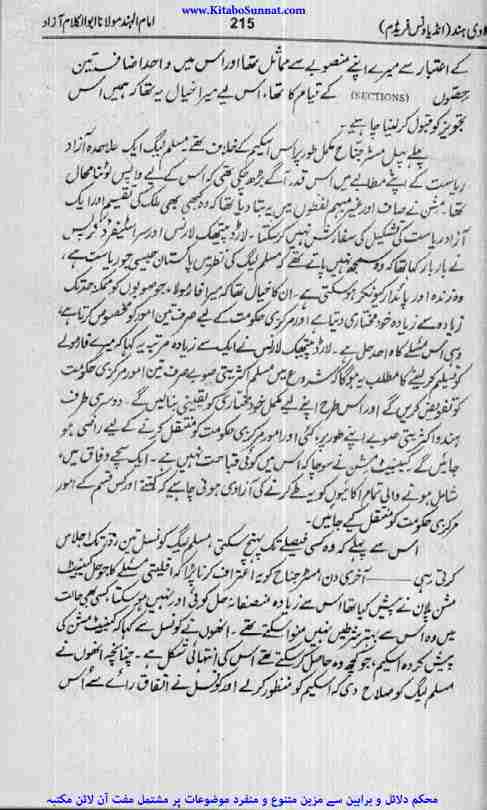 www.KitaboSunnat.com
امام الہند مولانا ابوالکلام آزاد
215
دی ہند (انڈیا ونس فریڈم)
کے اعتبار سے میرے اپنے منصوبے سے مماثل تھا اور اس میں واحد اضافہ تین
حصّوں (SECTIONS) کے قیام کا تھا، اس لیے میرا خیال یہ تھا کہ ہمیں اس
تجویز کو قبول کر لینا چاہیے۔
پہلے پہل مسٹر جناح مکمل طور پر اس اسکیم کے خلاف تھے، مسلم لیگ ایک علاحدہ آزاد
ریاست کے اپنے مطالبے میں اس قدر آگے بڑھ چکی تھی کہ اس کے لیے واپس لوٹنا محال
تھا۔ مشن نے صاف اور غیر مبہم لفظوں میں یہ بتا دیا تھا کہ وہ کبھی بھی ملک کی تقسیم اور ایک
آزاد ریاست کی تشکیل کی سفارش نہیں کر سکتا۔ لارڈ پیتھک لارنس اور سر اسٹیفرڈ کرپس
نے بار بار کہا تھا کہ وہ سمجھ نہیں پاتے تھے کہ مسلم لیگ کی نظر میں پاکستان جیسی جو ریاست ہے،
وہ زندہ اور پائدار کیونکر ہو سکتی ہے۔ ان کا خیال تھا کہ میرا فارمولا، جو صوبوں کو ممکنہ حد تک
زیادہ سے زیادہ خود مختاری دیتا ہے اور مرکزی حکومت کے لیے صرف تین امور کو مخصوص کرتا ہے،
وہی اس مسئلے کا واحد حل ہے۔ لارڈ پیتھک لارنس نے ایک سے زیادہ مرتبہ یہ کہا کہ میرے فارمولے
کو تسلیم کر لینے کا مطلب یہ ہوگا کہ شروع میں مسلم اکثریتی صوبے صرف تین امور مرکزی حکومت
کو تفویض کریں گے اور اس طرح اپنے لیے مکمل خود مختاری کو یقینی بنا لیں گے۔ دوسری طرف
ہندو اکثریتی صوبے اپنے طور پر، کئی اور امور مرکزی حکومت کو منتقل کرنے کے لیے راضی ہو
جائیں گے، کیبینٹ مشن نے سوچا کہ اس میں کوئی قباحت نہیں ہے۔ ایک سچے وفاق میں،
شامل ہونے والی تمام اکائیوں کو یہ طے کرنے کی آزادی ہونی چاہیے کہ کتنے اور کس قسم کے امور
مرکزی حکومت کو منتقل کیے جائیں۔
اس سے پہلے کہ وہ کسی فیصلے تک پہنچ سکتی، مسلم لیگ کونسل تین روز تک اجلاس
کرتی رہی — آخری دن، مسٹر جناح کو یہ اعتراف کرنا پڑا کہ اقلیتی مسئلے کا جو حل کیبینٹ
مشن پلان نے پیش کیا تھا اس سے زیادہ منصفانہ حل کوئی اور نہیں ہو سکتا، کسی بھی حالت
میں وہ اس سے بہتر شرطیں نہیں منوا سکتے تھے۔ انھوں نے کونسل سے کہا کہ کیبینٹ مشن کی
پیش کردہ اسکیم، جو کچھ وہ حاصل کر سکتے تھے اس کی انتہائی شکل ہے۔ چنانچہ انھوں نے
مسلم لیگ کو صلاح دی کہ اسکیم کو منظور کرلے اور کونسل نے اتفاق رائے سے اُس
محکم دلائل و براہین سے مزین متنوع و منفرد موضوعات پر مشتمل مفت آن لائن مکتبہ